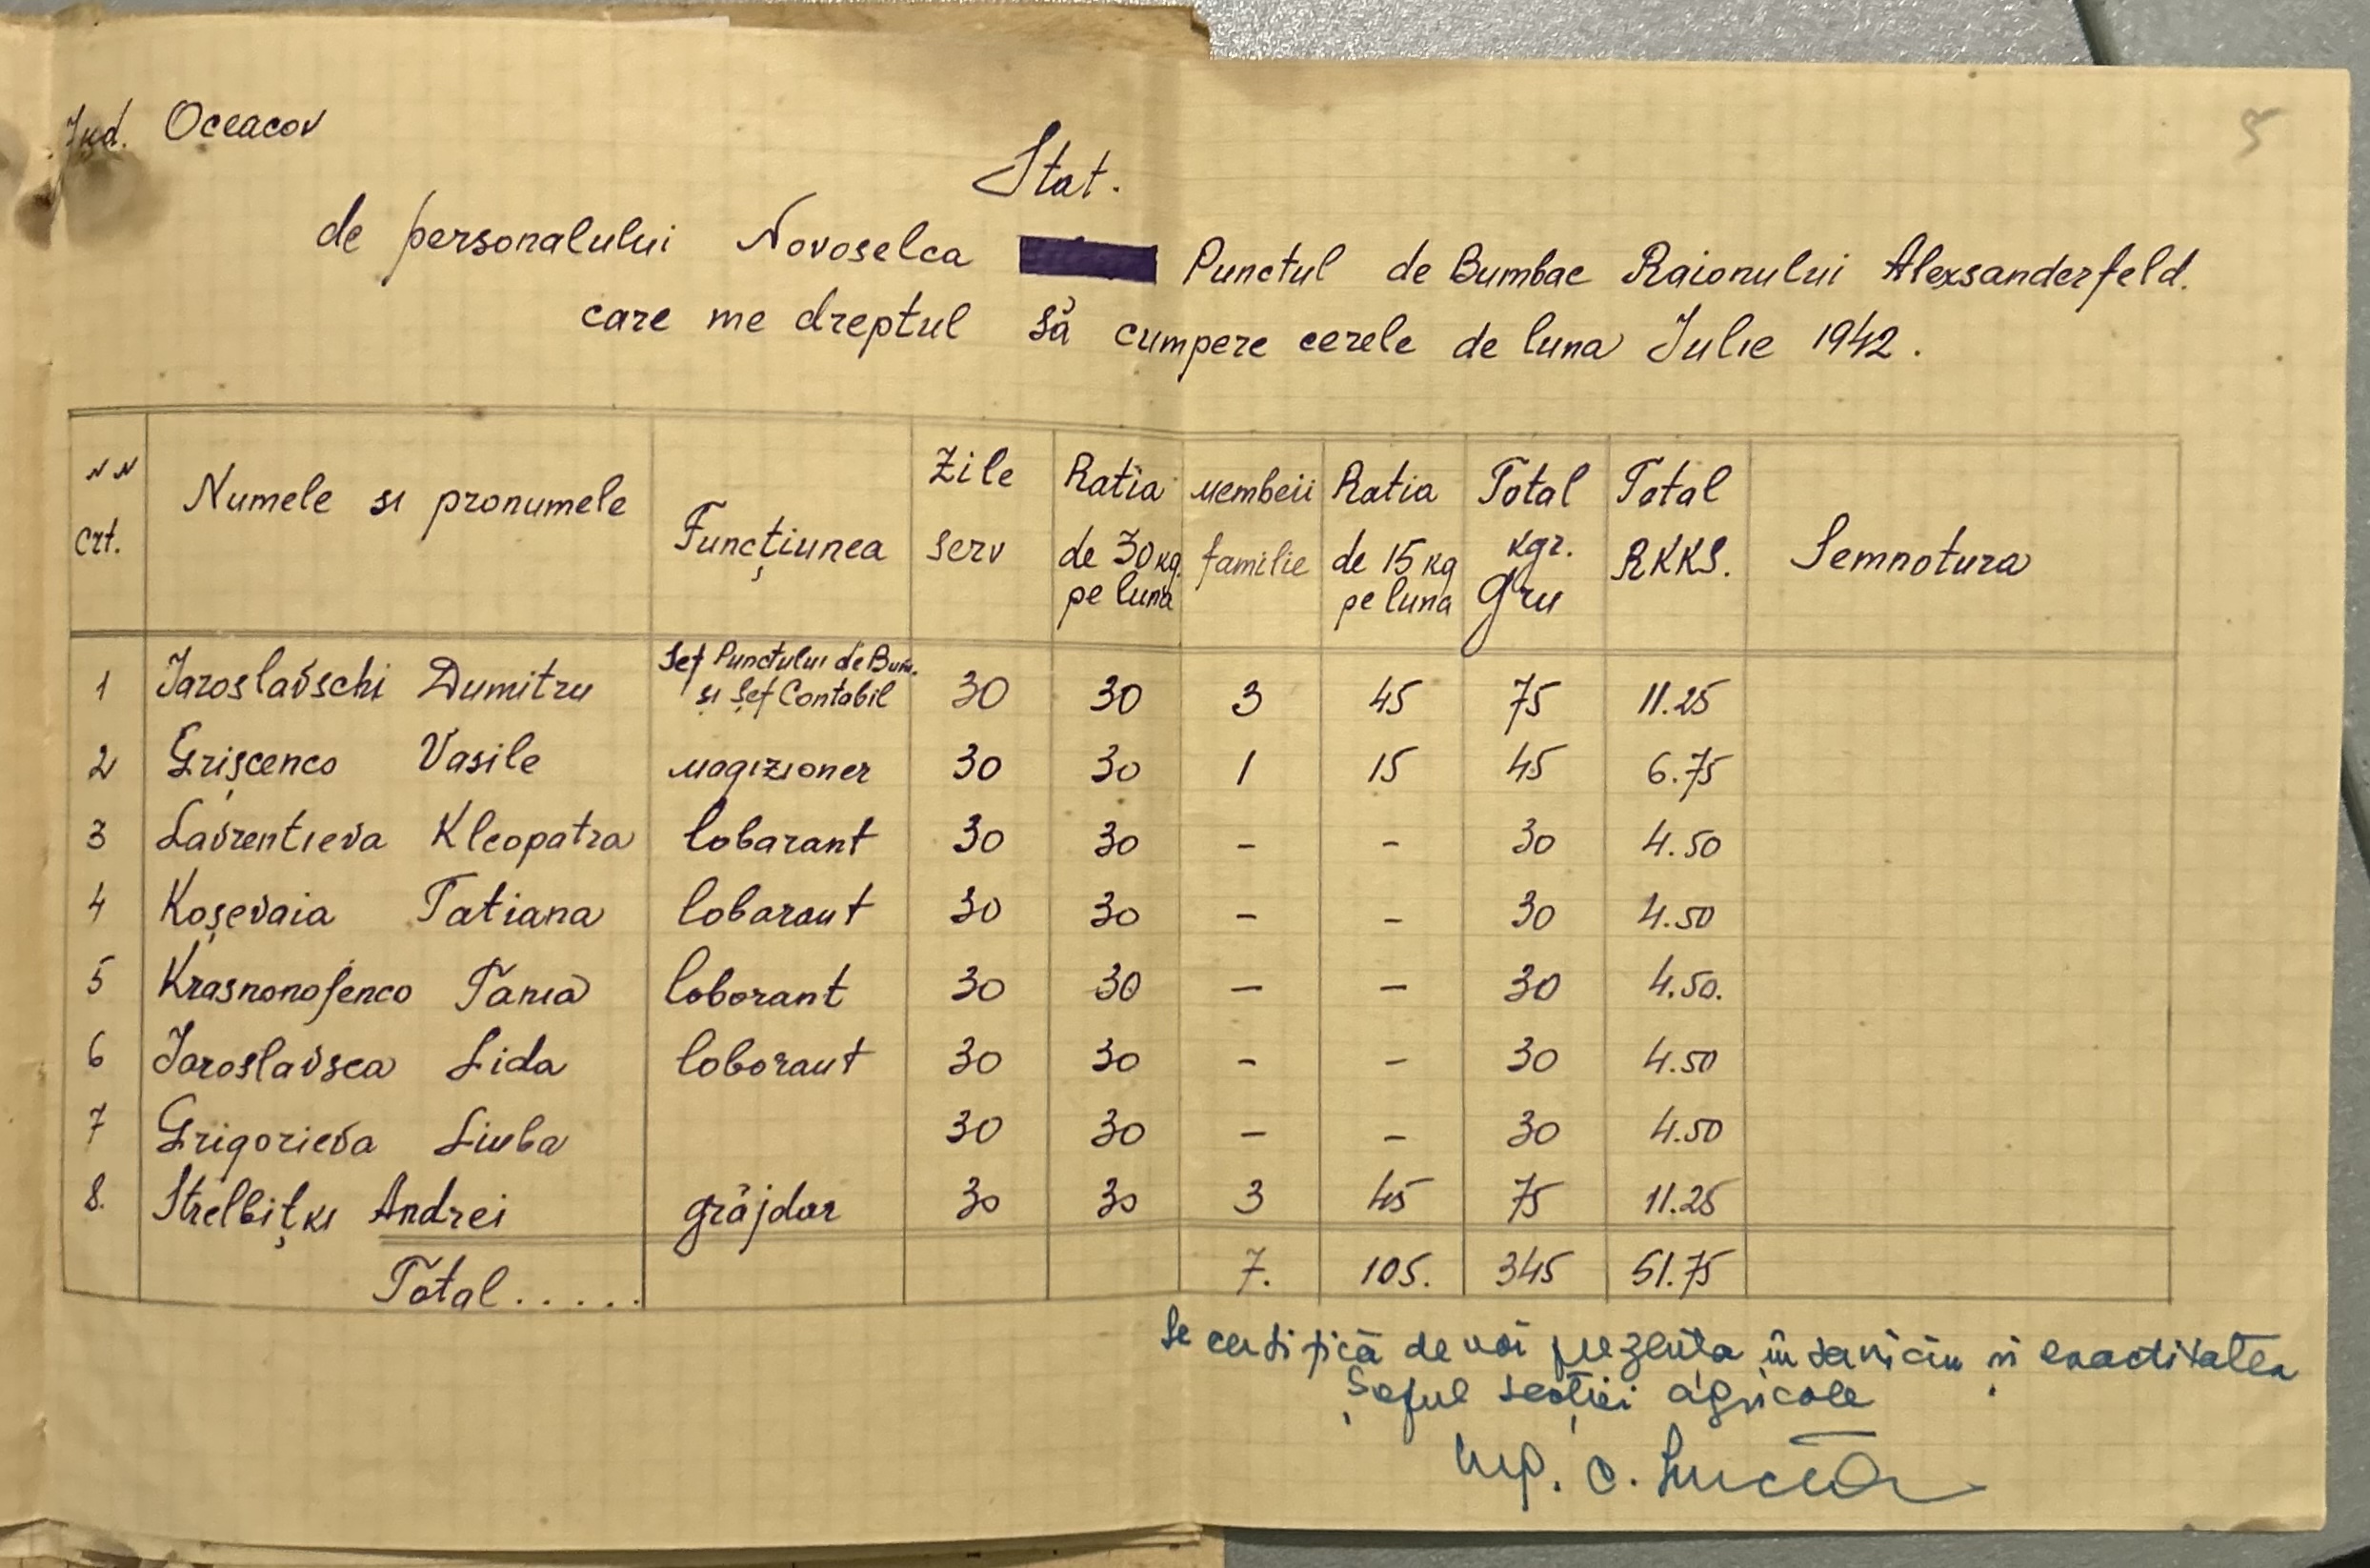 Jud. Oceacov
5
Stat.
de personalului Novoselca Punctul de Bumbac Raionului Alexsanderfeld.
care me dreptul să cumpere cerele de luna Iulie 1942.
NN crt. Numele si pronumele Funcțiunea Zile serv Ratia de 30 kg. pe luna membeii familie Ratia de 15 kg pe luna Total kgr. Gru Total RKKS. Semnotura
1 Iaroslavschi Dumitru Sef Punctului de Bum. și Șef Contabil 30 30 3 45 75 11.25
2 Grișcenco Vasile magizioner 30 30 1 15 45 6.75
3 Lavrentieva Kleopatra lobarant 30 30 - - 30 4.50
4 Koșevaia Tatiana lobarant 30 30 - - 30 4.50
5 Krasnonosenco Tania loborant 30 30 - - 30 4.50.
6 Iaroslavsca Lida loborant 30 30 - - 30 4.50
7 Grigorieva Liuba 30 30 - - 30 4.50
8. Strelbițki Andrei grăjdar 30 30 3 45 75 11.25
Total..... 7. 105. 345 51.75
Se certifică de noi prezența în serviciu și exactitatea
Șeful secției agricole
Ing. C.